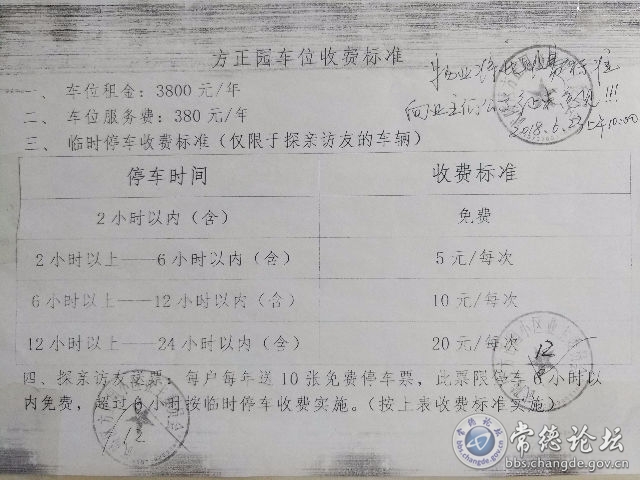 方正园车位收费标准
一、 车位租金：3800 元/年
二、 车位服务费：380 元/年
三、 临时停车收费标准（仅限于探亲访友的车辆）
停车时间 收费标准
2 小时以内（含） 免费
2 小时以上——6 小时以内（含） 5 元/每次
6 小时以上——12 小时以内（含） 10 元/每次
12 小时以上——24 小时以内（含） 20 元/每次
四、探亲访友送票：每户每年送 10 张免费停车票，此票限停车 6 小时以
内免费，超过 6 小时按临时停车收费实施。（按上表收费标准实施）
向业主 征求意见!!!
2018.6.23
12
常德论坛
bbs.changde.gov.cn